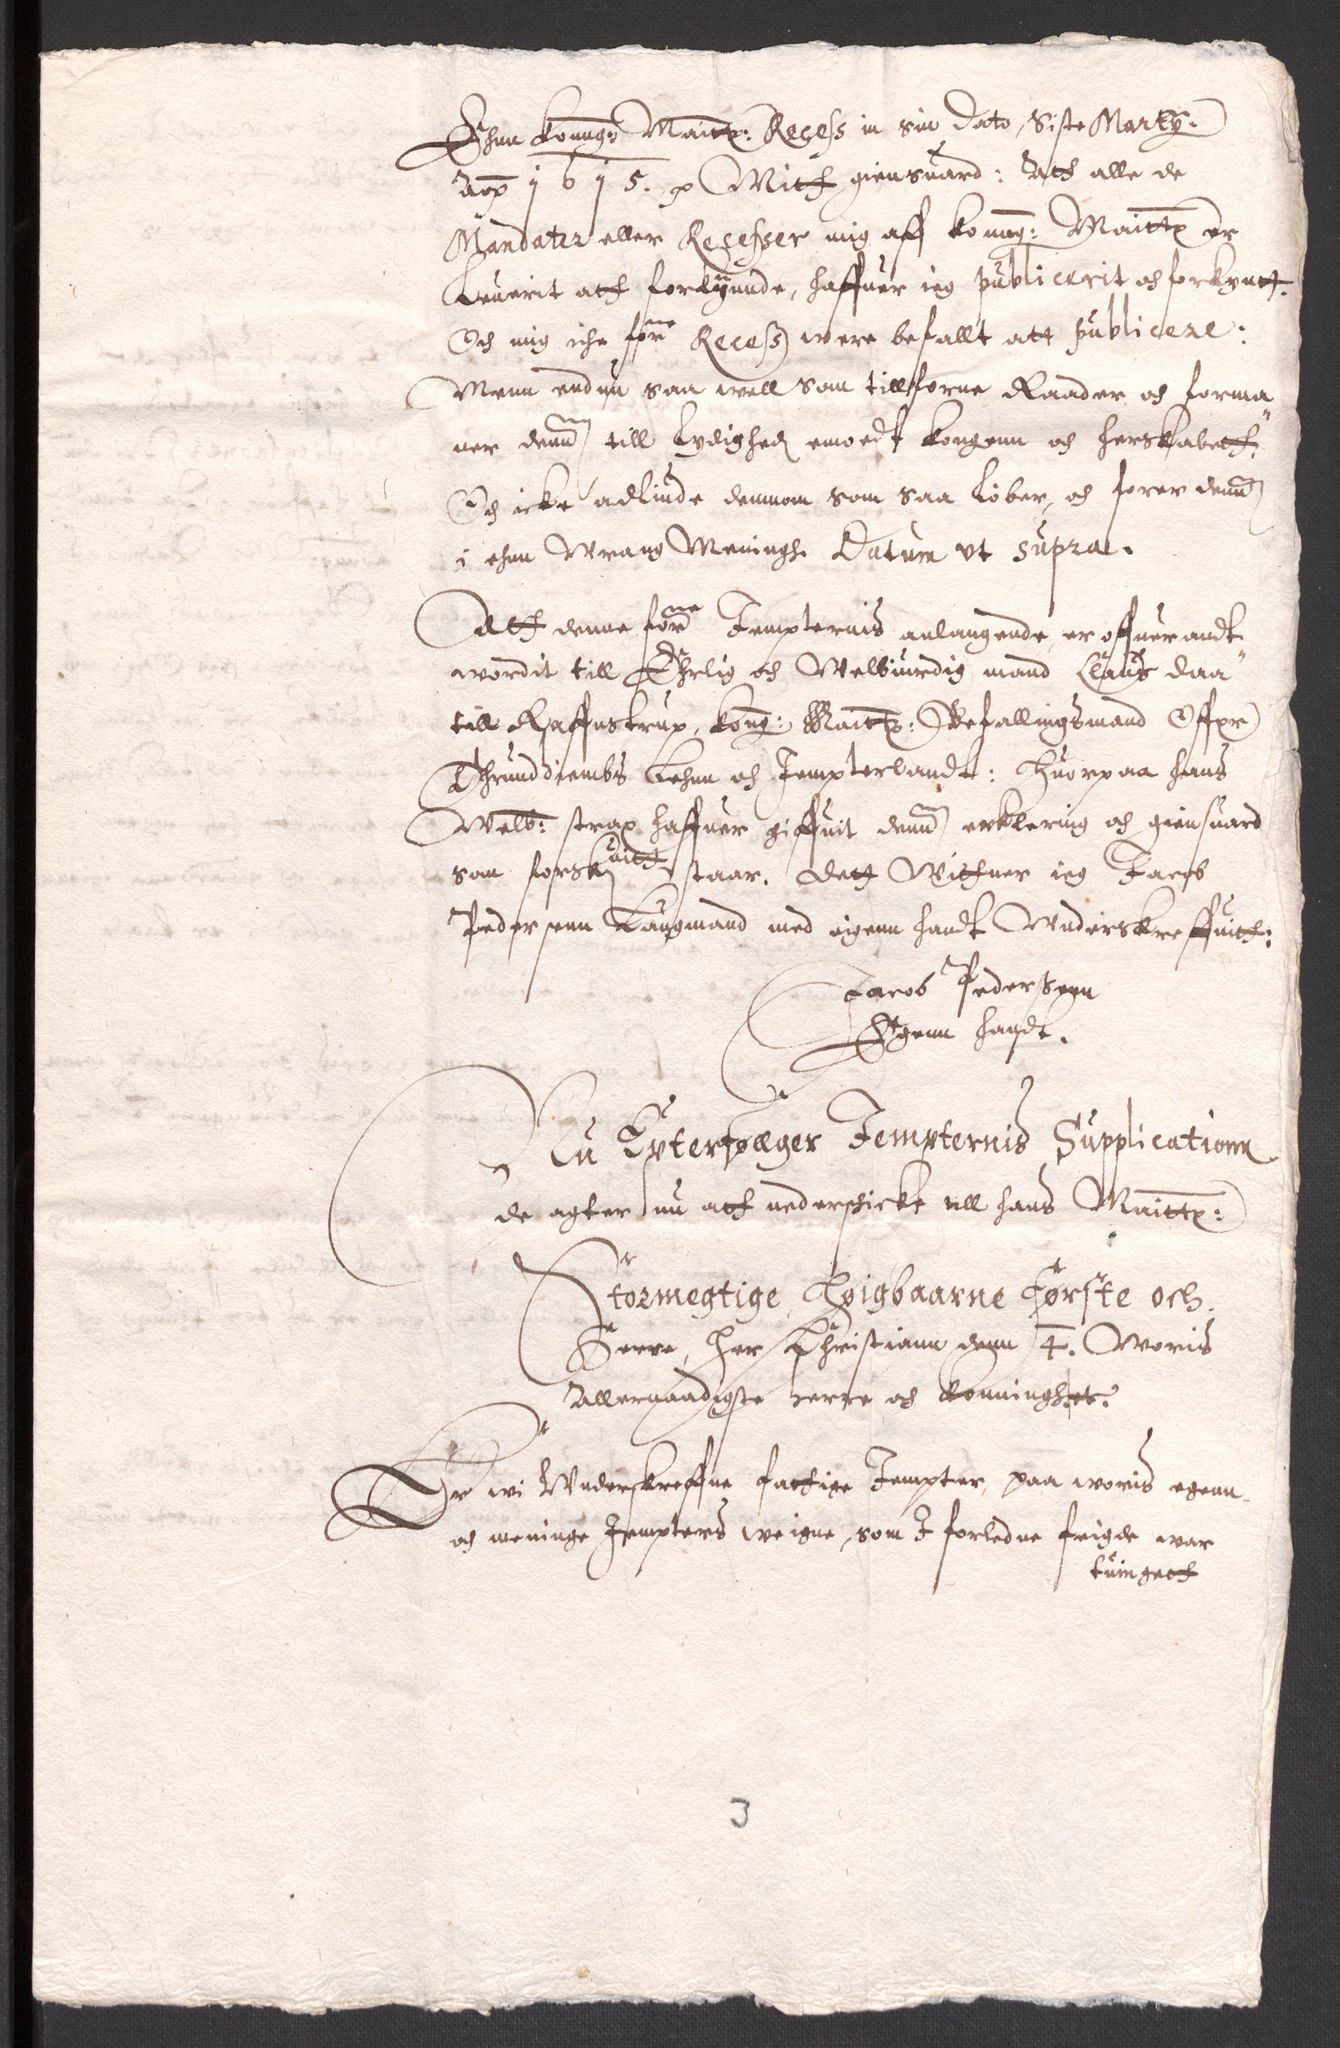 Ehnn Konng: Maittz: Recess in sin Dato, Siste Marty:
Aoo 1615. p Mith giensuard: Ath alle de
Mandater eller Recesser mig aff konng: Maittz er
Leuerit ath forkÿnnde, haffuer ieg publicerit och forkyntt.
Och mig iche forne Recess were befallt att publicere:
Menn endnu saa well som tillforne Raader och forma
ner dennom till Lydighed emoedt kongenn och herskabett.
Och icke adlinde dennom som saa Løber, och forer dennom
i ehnn Wrang Meningh. Datum vt supra.
Att denne forne Jempternis anlangende, er offuerandt
wordit till Ehrlig och Welbiurdig mand Claus daa
till Raffnstrup, kong: Maittz: Befallingsmand Offuer
Thrunddiembs Lehnn och Jempterlandt: Huorpaa hans
Welb: strax haffuer giffuit denne erklering och giensuard
som forskreuitt staar. Dett Withner ieg Jacob
Pedersenn Laugmand med eigenn handt Vnderskreffuith:
Jacob Pedersenn
Egenn handt.
Nu Eyterføllger Jempternis Supplicationn
de agter nu ath nederschicke till hans Maittz:
Stormegtige Høigbaarne Første och
Herre, Her Christiann denn 4. Woris
Allernaadigste herre och Konningh etc.
Er wi Vnderskreffne fattige Jempter, paa woris egenn
och meninge Jempters weigne, som I forledne feigde war
tuingett
3